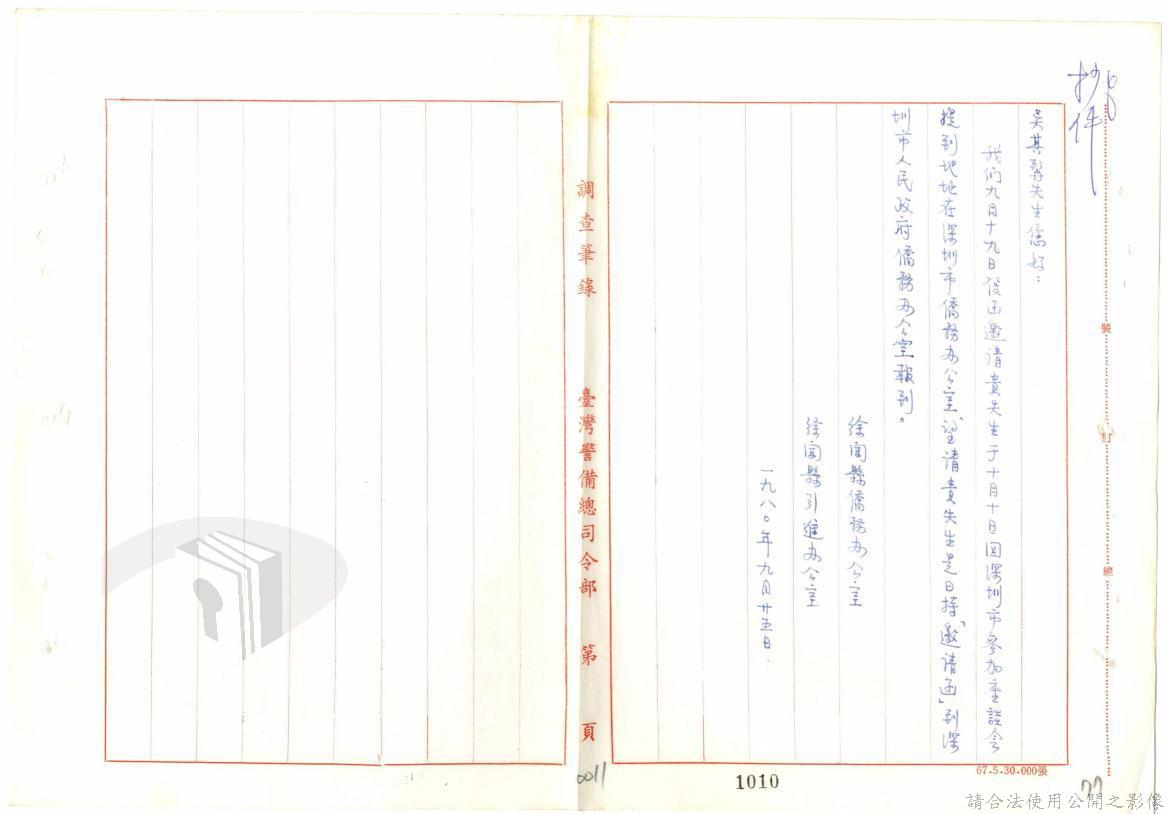 抄件
吳其
先生您好：
我们九月十九日發函邀请貴先生于十月十日回深圳市參加座談会
提到地址在深圳市僑務办公室，望请貴先生是日持「邀请函」到深
圳市人民政府僑務办公室報到。
徐闻縣僑務办公室
徐闻縣引進办公室
一九八〇年九月廿五日
裝
訂
線
調查筆錄
臺灣警備總司令部
第
頁
0011
1010
67.5.30.000張
77
請合法使用公開之影像